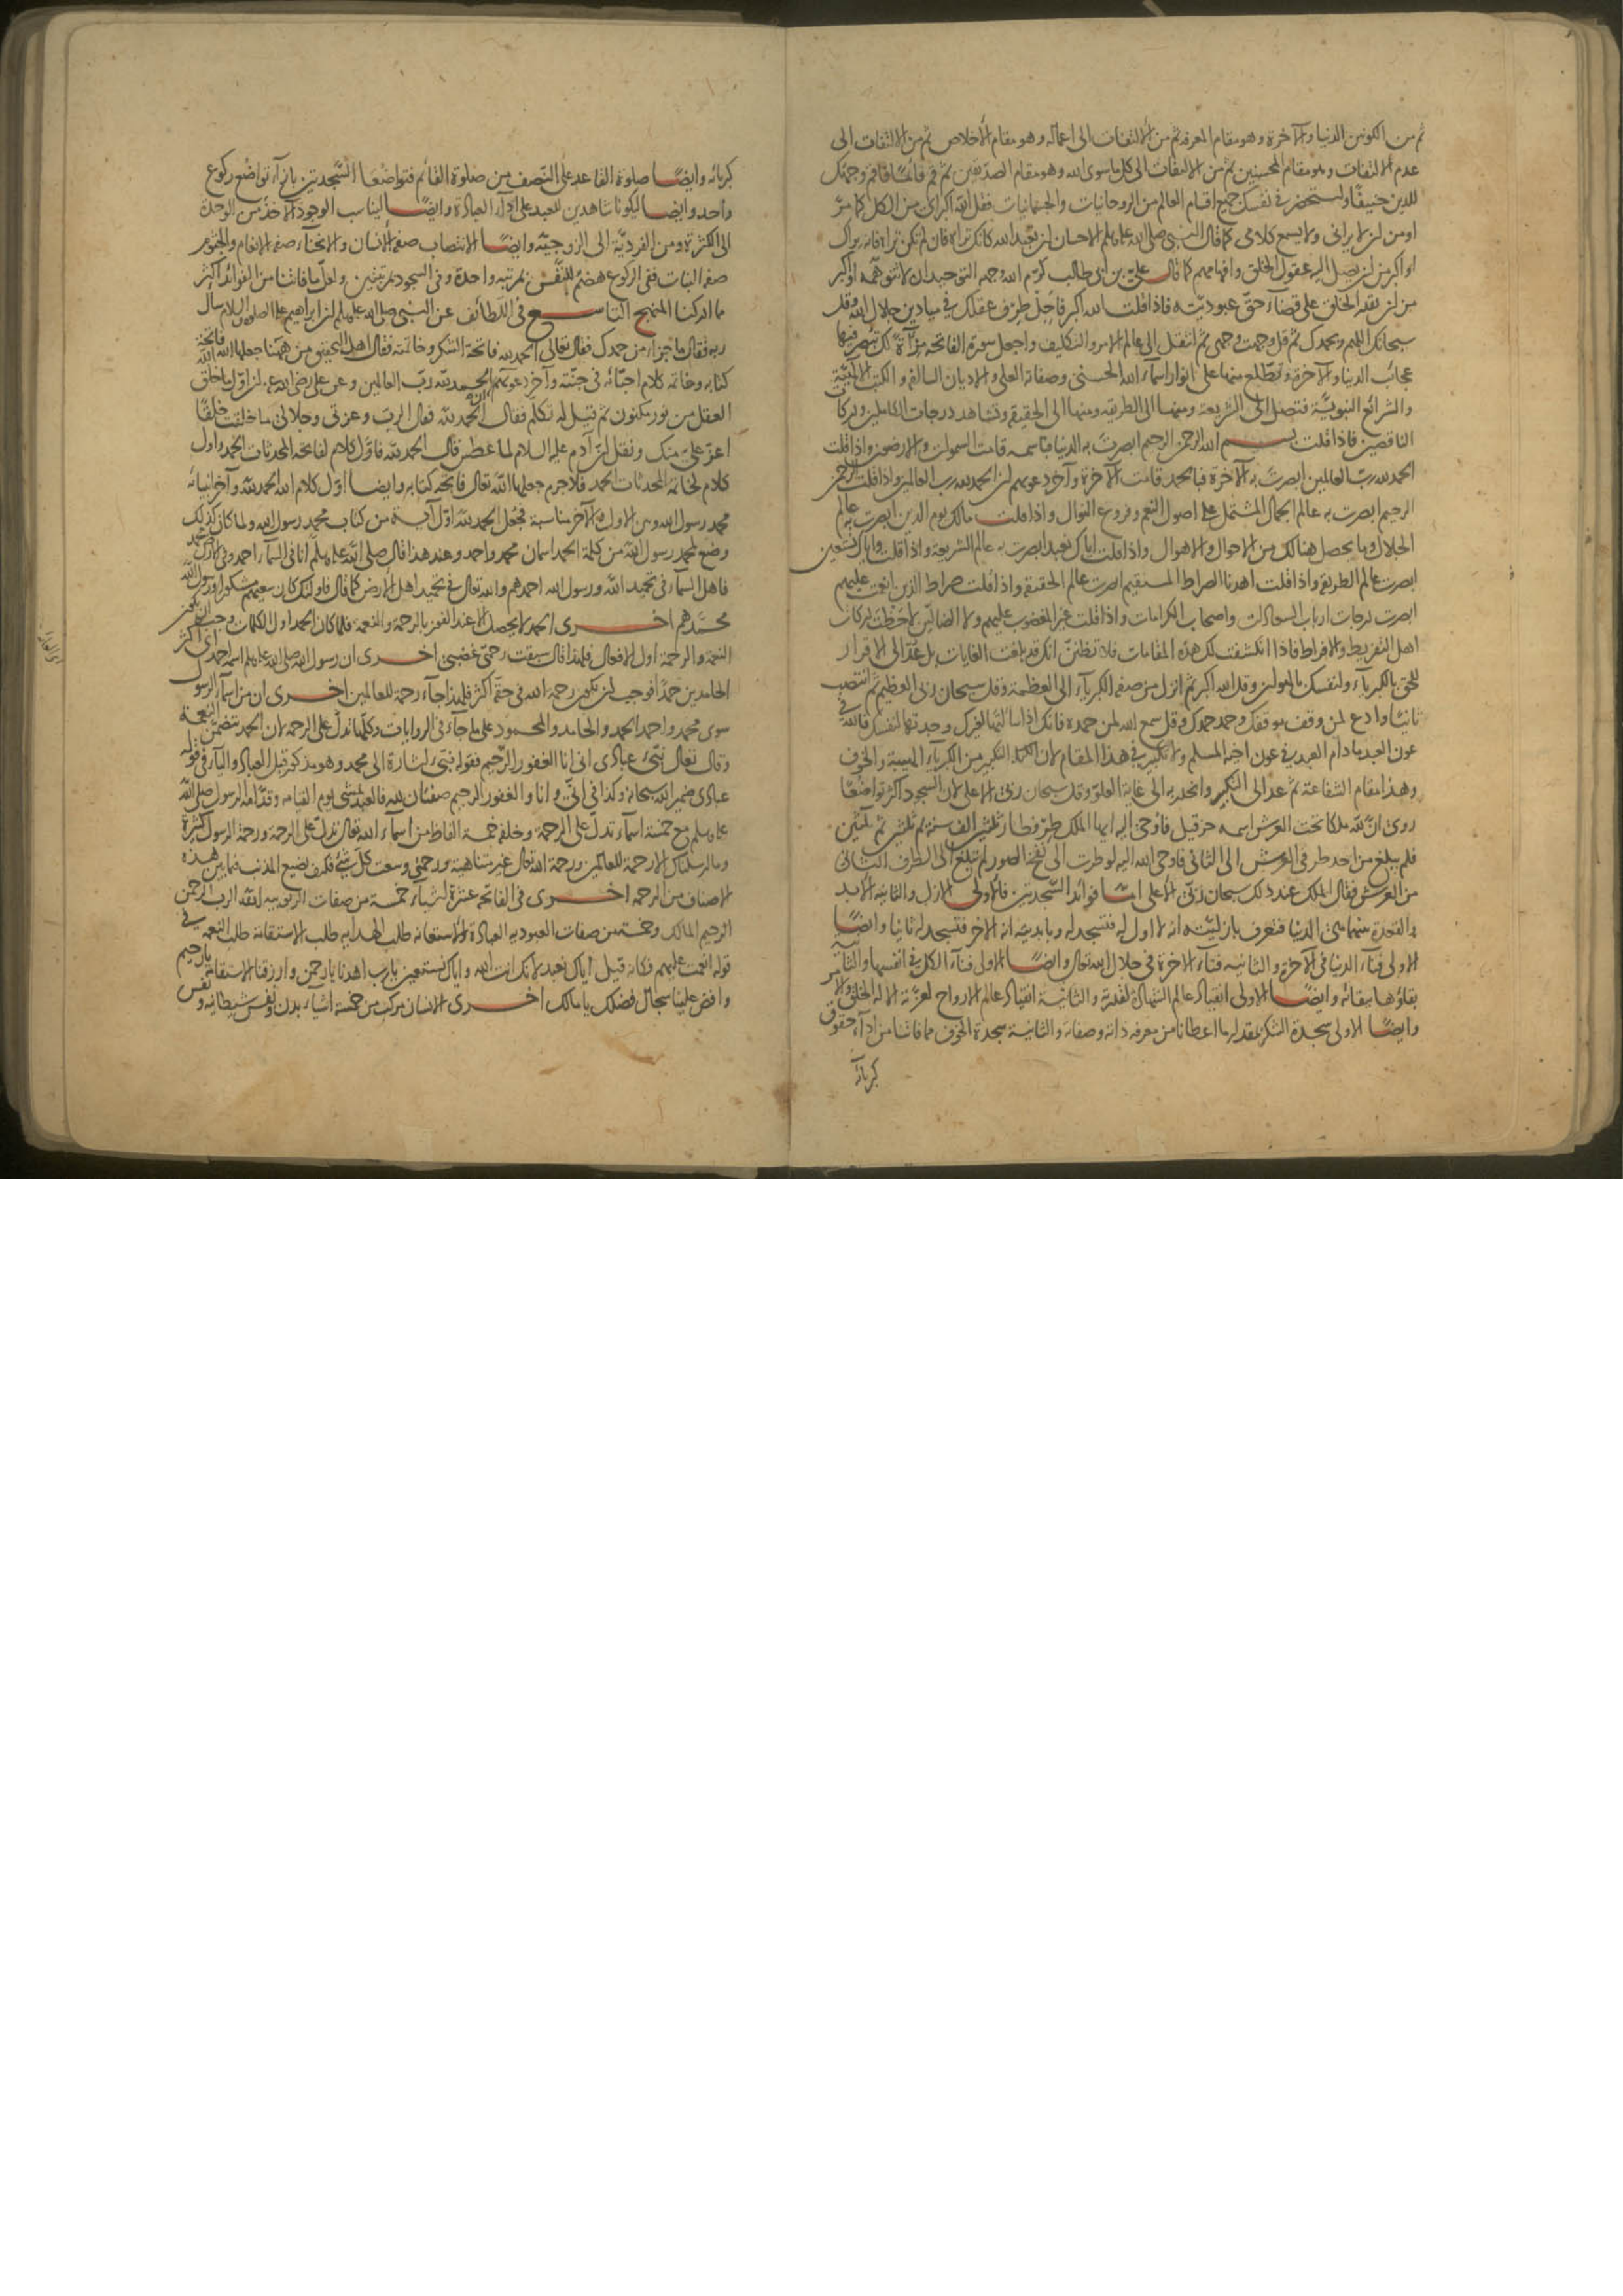 ثم من الكونين الدنيا والآخرة وهو مقام المعرفة ثم من الالتفات الى اعماله وهو مقام الاخلاص ثم من الالتفات الى
عدم الالتفات وهو مقام المحسنين ثم من الالتفات الى كل ما سوى الله وهو مقام الصديقين ثم قم قائما فاقم وجهك
للدين حنيفا واستحضر في نفسك جميع اقسام العالم من الروحانيات والجسمانيات فقل الله اكبر اى من الكل كما مر
او من لن لا يرانى ولا يسمع كلامى كما قال النبى صلى الله عليه وسلم الاحسان ان تعبد الله كانك تراه فان لم تكن تراه فانه يراك
او اكبر من ان يصل اليه عقول الخلق وافهامهم كما قال على بن ابى طالب كرم الله وجهه التوحيد ان لا تتوهمه او اكبر
من ان يقدر الخلق على قضاء حق عبوديته فاذا قلت الله اكبر فاجل طرف عقلك في ميادين جلال الله وقل
سبحانك اللهم وبحمدك ثم قل وجهت وجهى ثم انتقل الى عالم الامر والتكليف واجعل سورة الفاتحة مرآة لك تبصر فيها
عجائب الدنيا والآخرة وتطلع منها على انوار اسماء الله الحسنى وصفاته العلى والاديان السالفة والكتب الالهية
والشرائع النبوية فتصل الى الشريعة ومنها الى الطريقة ومنها الى الحقيقة وتشاهد درجات الكاملين ودركات
الناقصين فاذا قلت بسم الله الرحمن الرحيم ابصرت به الدنيا فباسمه قامت السموات والارضون واذا قلت
الحمد لله رب العالمين ابصرت به الآخرة فبالحمد قامت الآخرة وآخر دعويهم ان الحمد لله رب العالمين واذا قلت الرحمن
الرحيم ابصرت به عالم الجمال المشتمل على اصول النعم وفروع النوال واذا قلت مالك يوم الدين ابصرت به عالم
الجلال وما يحصل هنالك من الاحوال والاهوال واذا قلت اياك نعبد ابصرت به عالم الشريعة واذا قلت واياك نستعين
ابصرت عالم الطريقة واذا قلت اهدنا الصراط المستقيم ابصرت عالم الحقيقة واذا قلت صراط الذين انعمت عليهم
ابصرت درجات ارباب السعادات واصحاب الكرامات واذا قلت غير المغضوب عليهم ولا الضالين لاحظت دركات
اهل التفريط والافراط فاذا انكشفت لك هذه المقامات فلا تظنن انك قد بلغت الغايات بل عد الى الاقرار
للحق بالكبرياء ولنفسك بالهوان وقل الله اكبر ثم انزل من صفة الكبرياء الى العظمة وقل سبحان ربى العظيم ثم انتصب
ثانيا وادع لمن وقف موقفك وحمد حمدك وقل سمع الله لمن حمده فانك اذا سالتها لغيرك وجدتها لنفسك فالله في
عون العبد ما دام العبد في عون اخيه المسلم ولا تكبير في هذا المقام لان التكبير من الكبرياء الهيبة والخوف
وهذا مقام الشفاعة ثم عد الى التكبير وانحدر به الى غاية العلو وقل سبحان ربى الاعلى لان السجود اكثر تواضعا
روى ان لله ملكا تحت العرش اسمه حزقيل فاوحى اليه ايها الملك طر وطار ثلثين الف سنة ثم ثلثين ثم ثلثين
فلم يبلغ من احد طرفى العرش الى الثانى فاوحى الله اليه لو طرت الى نفخ الصور لم تبلغ الى الطرف الثانى
من العرش فقال الملك عند ذلك سبحان ربى الاعلى اما فوائد السجدتين فالاولى الازل والثانية الابد
والقعدة بينهما هى الدنيا فتعرف بازليته انه لا اول له فتسجد له وبابديته انه لا اخر فتسجد له ثانيا وايضا
الاولى فناء الدنيا في الآخرة والثانية فناء الاخرة في جلال الله تعالى وايضا الاولى فناء الكل في انفسها والثانية
بقاؤها ببقائه وايضا الاولى انقياد عالم الشهادة لقدرته والثانية انقياد عالم الارواح لعزته الا له الخلق والامر
وايضا الاولى سجدة الشكر بقدر ما اعطانا من معرفة ذاته وصفاته والثانية سجدة الخوف مما فاتنا من اداء حقوق
كبريائه
كبريائه وايضا صلوة القاعد على النصف من صلوة القائم فتواضعا السجدتين بازاء تواضع ركوع
واحد وايضا ليكونا شاهدين للعبد على اداء العبادة وايضا ليناسب الوجود الاخذ من الوحدة
الى الكثرة ومن الفردية الى الزوجية وايضا الانتصاب صفة الانسان والانحناء صفة الانعام والجثوم
صفة النبات ففى الركوع هضم للنفس بمرتبة واحدة وفى السجود بمرتبتين ولعل ما فاتنا من الفوائد اكثر
مما ادركنا المنهج التاسع في اللطائف عن النبى صلى الله عليه وسلم ان ابراهيم عليه الصلوة والسلام سأل
ربه فقال ما جزاء من حمدك فقال تعالى الحمد لله فاتحة الشكر وخاتمته فقال اهل التحقيق من ههنا جعلها الله فاتحة
كتابه وخاتمة كلام احبائه في جنته وآخر دعويهم ان الحمد لله رب العالمين وعن على رضى الله عنه ان اول ما خلق الله
العقل من نور مكنون ثم قيل له تكلم فقال الحمد لله فقال الرب وعزتى وجلالى ما خلقت خلقا
اعز على منك ونقل ان آدم عليه السلام لما عطس قال الحمد لله فاول كلام لفاتحة المحدثات الحمد واول
كلام لخاتمة المحدثات الحمد فلا جرم جعلها الله تعالى فاتحة كتابه وايضا اول كلام الله الحمد لله وآخر انبيائه
محمد رسول الله وبين الاول والآخر مناسبة فجعل الحمد لله اول آية من كتاب محمد رسول الله ولما كان كذلك
وضع لمحمد رسول الله من كلمة الحمد اسمان محمد واحمد وعند هذا قال صلى الله عليه وسلم انا في السماء احمد وفى الارض محمد
فاهل السماء في تحميد الله ورسول الله احمدهم والله تعالى في تحميد اهل الارض كما قال فاولئك كان سعيهم مشكورا ورسول الله
محمدهم اخرى الحمد لا يحصل الا عند الفوز بالرحمة والنعمة فلما كان الحمد اول الكلمات وجب ان يكون
النعمة والرحمة اول الافعال فلهذا قال سبقت رحمتى غضبى اخرى ان رسول الله صلى الله عليه وسلم اسمه احمد اى اكثر
الحامدين حمدا فوجب ان تكون رحمة الله في حقه اكثر فلهذا جاء رحمة للعالمين اخرى ان من اسماء الرسول
سوى محمد واحمد الحمد والحامد والمحمود على ما جاء في الروايات وكلها تدل على الرحمة لان الحمد يتضمن النعمة
وقال تعالى نبئ عبادى انى انا الغفور الرحيم فقوله نبئ اشارة الى محمد وهو مذكور قبل العباد والياء في قوله
عبادى ضمير الله سبحانه وكذا في انى وانا والغفور الرحيم صفتان لله فالعبد يمشى يوم القيامة وقدامه الرسول صلى الله
عليه وسلم مع خمسة اسماء تدل على الرحمة وخلفه خمسة الفاظ من اسماء الله تعالى تدل على الرحمة ورحمة الرسول كثيرة
وما ارسلناك الا رحمة للعالمين ورحمة الله تعالى غير متناهية ورحمتى وسعت كل شئ فكيف يضيع المذنب فيما بين هذه
الاصناف من الرحمة اخرى في الفاتحة عشرة اشياء خمسة من صفات الربوبية الله الرب الرحمن
الرحيم المالك وخمسة من صفات العبودية العبادة والاستعانة طلب الهداية طلب الاستقامة طلب النعمة في
قوله انعمت عليهم فكانه قيل اياك نعبد لانك انت الله واياك نستعين يا رب اهدنا يا رحمن وارزقنا الاستقامة يا رحيم
وافض علينا سجال فضلك يا مالك اخرى الانسان مركب من خمسة اشياء بدن ونفس شيطانية ونفس